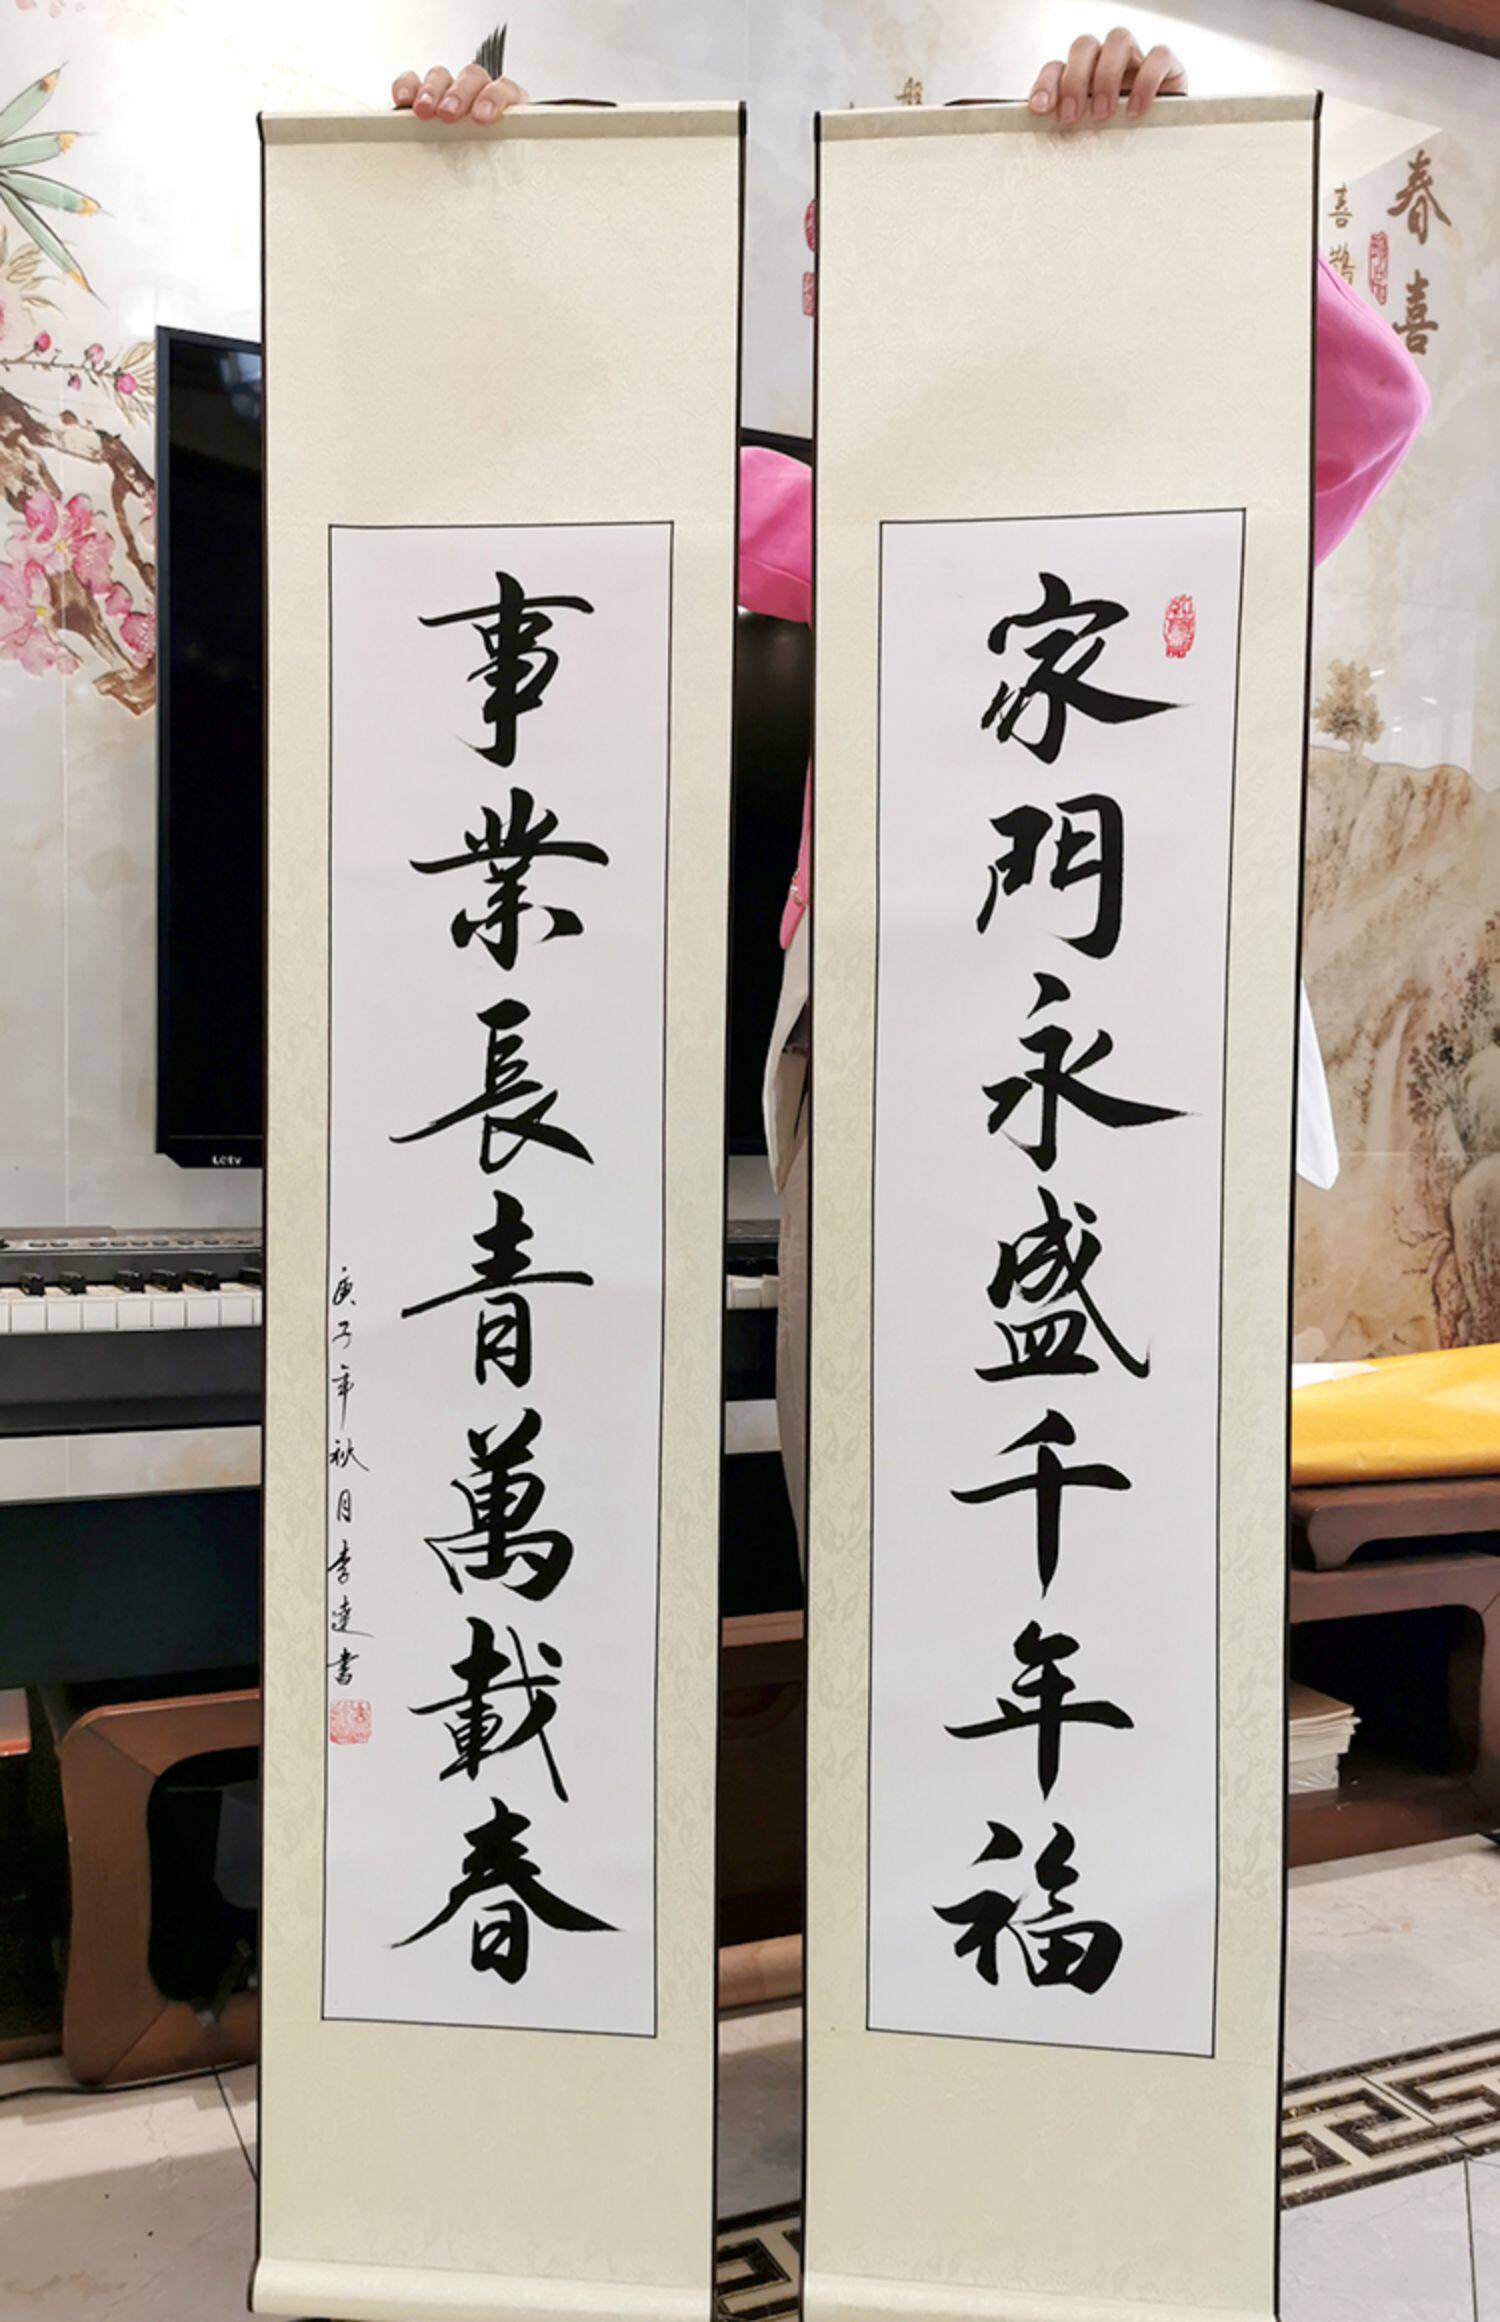 家門永盛千年福
事業長青萬載春
庚子年秋月李達書
春喜
喜鵲
LCTV